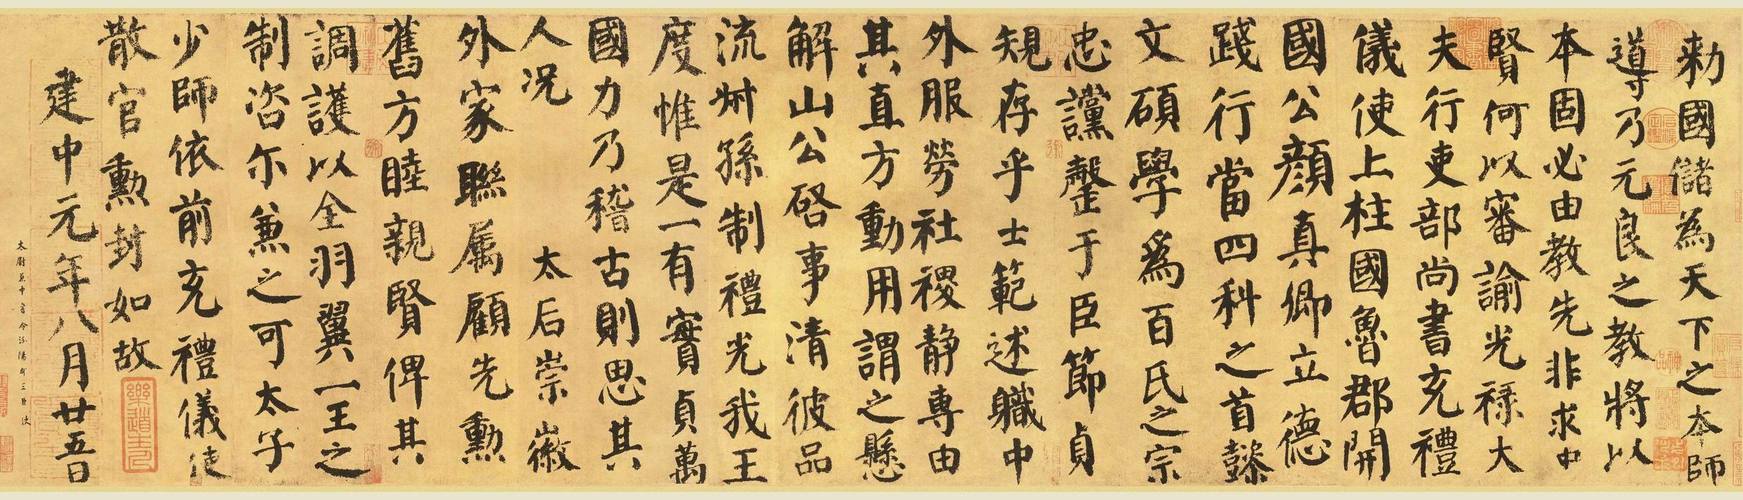 勅國儲為天下之本師
導乃元良之教將以
本固必由教先非求中
賢何以審諭光祿大
夫行吏部尚書充禮
儀使上柱國魯郡開
國公顏真卿立德
踐行當四科之首懿
文碩學為百氏之宗
忠讜罄于臣節貞
規存乎士範述職中
外服勞社稷静專由
其直方動用謂之懸
解山公啓事清彼品
流叔孫制禮光我王
度惟是一有實貞萬
國力乃稽古則思其
人况 太后崇徽
外家聯属顧先勲
舊方睦親賢俾其
調護以全羽翼一王之
制咨尔兼之可太子
少師依前充禮儀使
散官勲封如故
建中元年八月廿五日
太尉兼中書令汾陽郡王臣使
樂道主人